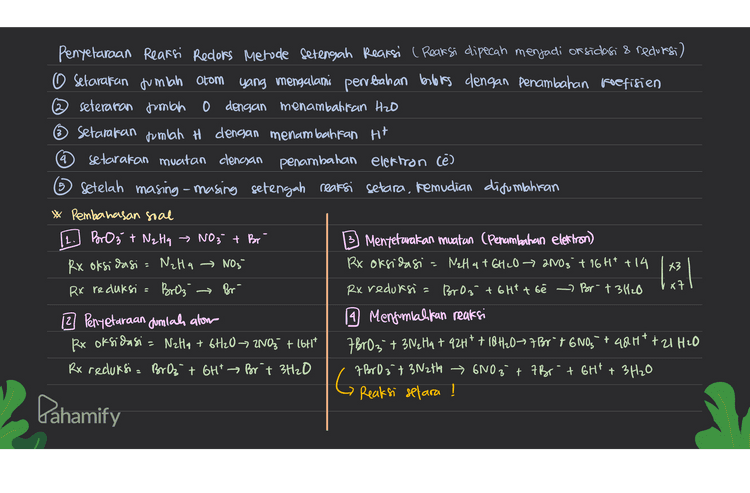 Penyetaraan Reaksi Redoks Metode Setengah Reaksi (Reaksi dipecah menjadi oksidasi & reduksi)
① Setarakan jumlah atom yang mengalami perubahan biloks dengan penambahan koefisien
② seterakan jumlah O dengan menambahkan H₂O
③ Setarakan jumlah H dengan menambahkan H⁺
④ setarakan muatan dengan penambahan elektron (ē)
⑤ Setelah masing-masing setengah reaksi setara, kemudian dijumlahkan
※ Pembahasan soal
1. BrO₃⁻ + N₂H₄ → NO₃⁻ + Br⁻
Rx oksidasi = N₂H₄ → NO₃⁻
Rx reduksi = BrO₃⁻ → Br⁻
2 Penyetaraan jumlah atom
Rx oksidasi = N₂H₄ + 6H₂O → 2NO₃⁻ + 16H⁺
Rx reduksi = BrO₃⁻ + 6H⁺ → Br⁻ + 3H₂O
3 Menyetarakan muatan (Penambahan elektron)
Rx oksidasi = N₂H₄ + 6H₂O → 2NO₃⁻ + 16H⁺ + 14 | x3
Rx reduksi = BrO₃⁻ + 6H⁺ + 6ē → Br⁻ + 3H₂O | x7
4 Menjumlahkan reaksi
7BrO₃⁻ + 3N₂H₄ + 42H⁺ + 18H₂O → 7Br⁻ + 6NO₃⁻ + 48H⁺ + 21H₂O
7BrO₃⁻ + 3N₂H₄ → 6NO₃⁻ + 7Br⁻ + 6H⁺ + 3H₂O
Reaksi setara !
Pahamify